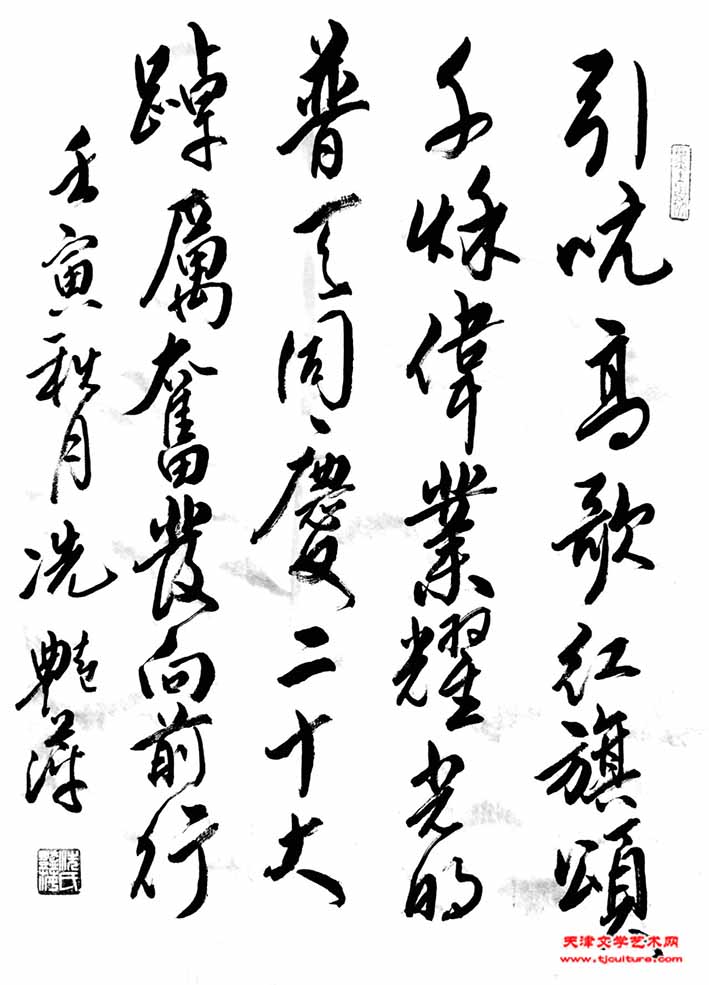 引吭高歌红旗頌
千秌偉業耀光明
普天同慶二十大
踔厲奮發向前行
壬寅秌月冼艷萍
天津文学艺术网
www.tjculture.com